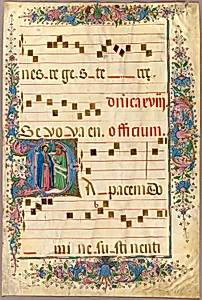 nes. re ge s. te _ _ re.
dnica xviii.
Se vo va en. officium.
A pacem do
_ mi ne su sti nenti